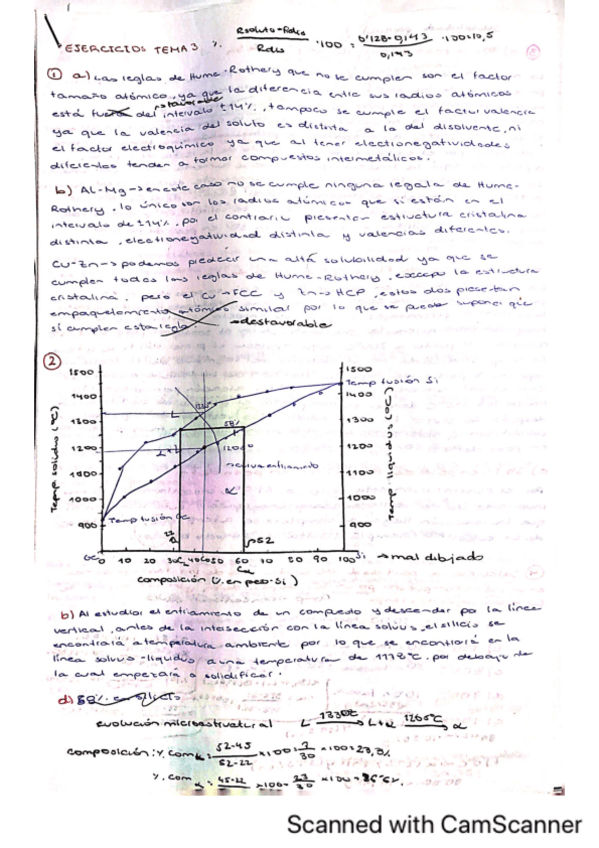 EJERCICIOS TEMA 3 % Rsoluto-Rdis / Rdis · 100 = 0'128-0,143 / 0,143 · 100=10,5
① a) Las reglas de Hume-Rothery que no se cumplen son el factor
tamaño atómico, ya que la diferencia entre sus radios atómicos
favorable
está fuera del intervalo ±14%, tampoco se cumple el factor valencia
ya que la valencia del soluto es distinta a la del disolvente, ni
el factor electroquímico ya que al tener electronegatividades
diferentes tenden a formar compuestos intermetálicos.
b) Al-Mg → en este caso no se cumple ninguna regla de Hume-
Rothery, lo único son los radios atómicos que si están en el
intervalo de ±14%, por el contrario presentan estructura cristalina
distinta, electronegatividad distinta y valencias diferentes.
Cu-Zn → podemos predecir una alta solubilidad ya que se
cumplen todas las reglas de Hume-Rothery, excepto la estructura
cristalina, pero el Cu → FCC y Zn → HCP, estos dos presentan
empaquetamiento atómico similar por lo que se puede suponer que
sí cumplen esta regla → desfavorable
②
1500
1400
1300
1200
1100
1000
900
Temp solidus (ºC)
1500
Temp fusión Si
1400
1300
1200
1100
1000
900
Temp. liquidus (ºC)
L
L+α
58%
α
Temp fusión Ge
52
Ge 0 10 20 30 40 50 60 70 80 90 100 Si → mal dibujado
Cα
Composición (% en peso Si)
b) Al estudiar el enfriamiento de un compuesto y descender por la línea
vertical, antes de la intersección con la línea solvus, el silicio se
encontrará a temperatura ambiente por lo que se encontrará en la
línea solvus-liquidus a una temperatura de 1178ºC, por debajo de
la cual empezará a solidificar.
d) 58%
evolución microestructural L 1330ºC → L+α 1200ºC → α
composición: % com L = 52-45 / 52-22 x100 = 7 / 30 x100 = 23,3%
% com α = 45-22 / x100 = 23 / 30 x100
Scanned with CamScanner